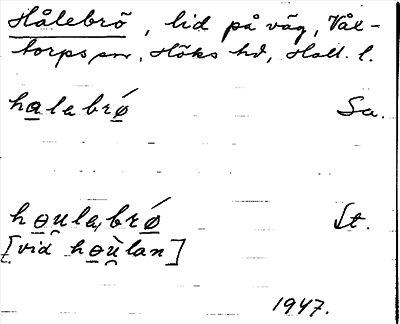 Hålebrõ, lid på väg, Vål-
torps sn, Hõks hd, Hall. l.
halebrǿ Sa.
hɵu̯lebrǿ St.
[vid hɵù̯lan]
1947.